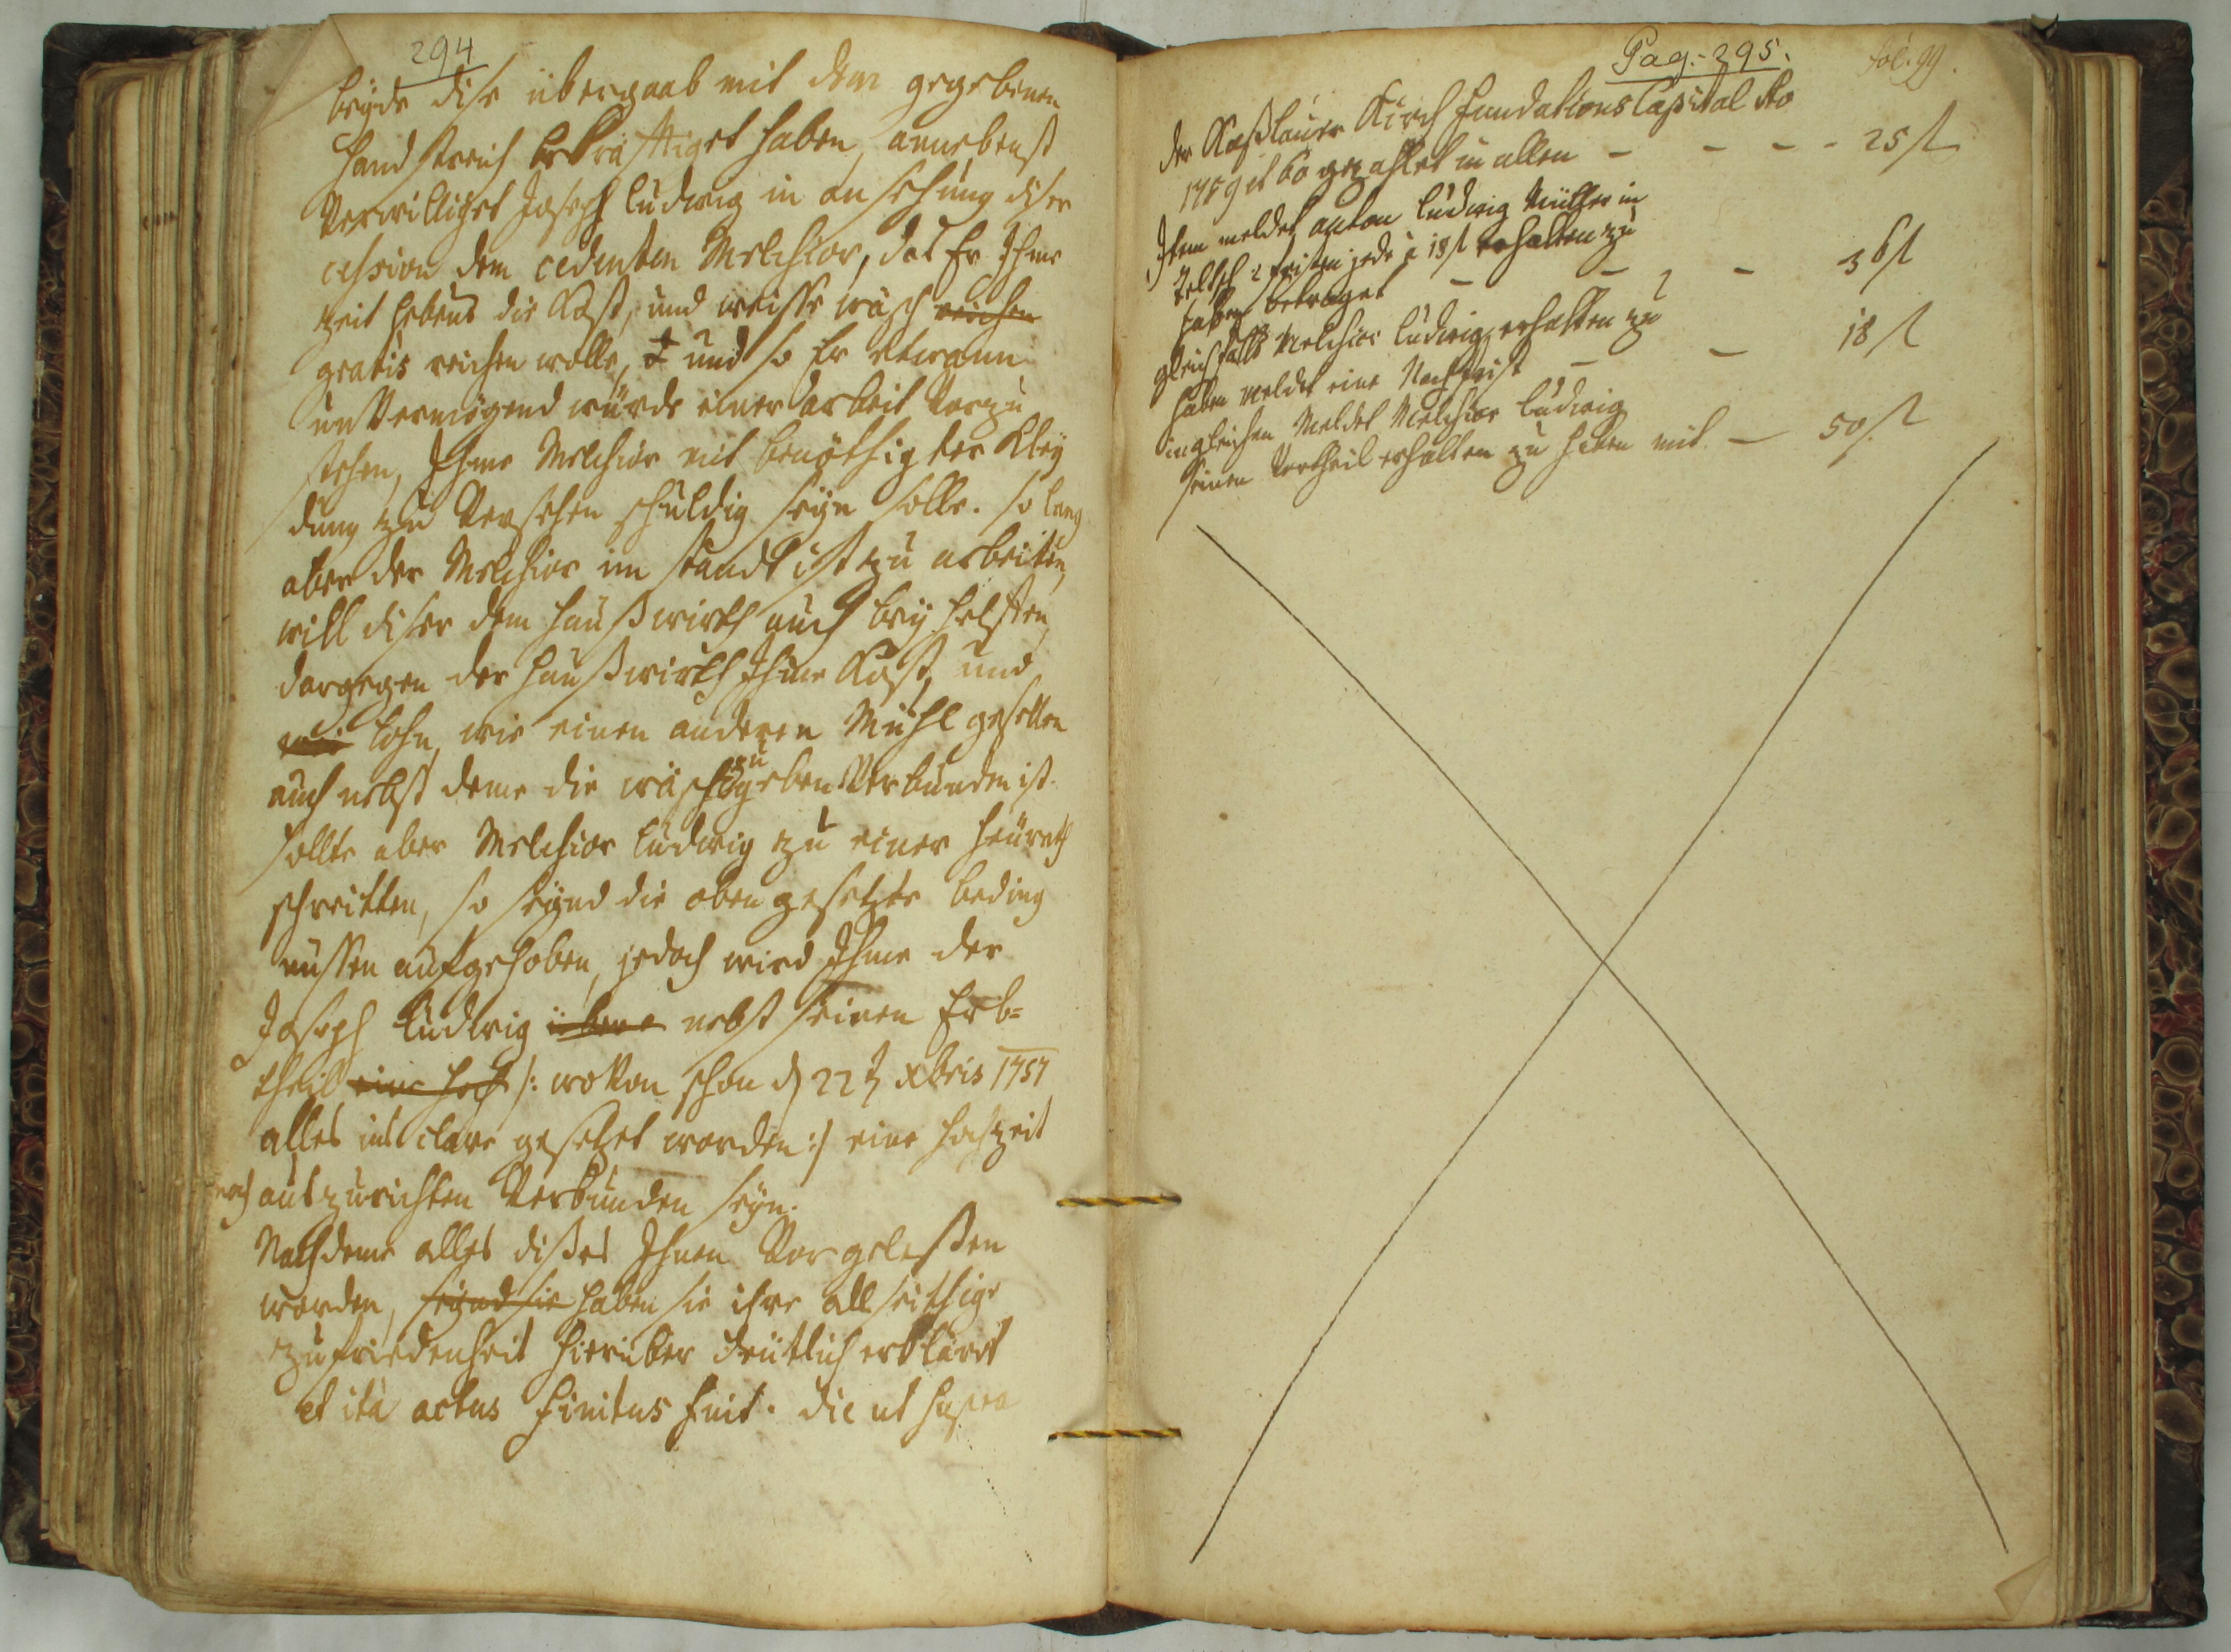 294
beyde dise übergaab mit dem gegebenen
handstreich bekräfftiget haben, annebenst
verwilliget Joseph Ludwig in ansehung diser
cession dem cedenten Melchior, daß Er Ihme
zeit lebens die Kost, und weisse wäsch reichen
gratis reichen wolle, und so Er etwann
unvermögend würde einer arbeit vorzu
stehen, Ihme Melchior mit benöthigter Kley
dung zu versehen schuldig seyn solle. so lang
aber der Melchior im standt ist zu arbeiten,
will diser dem haußwirth auch bey helffen,
dargegen der haußwirth Ihme Kost, und
lohn, wie einen anderen Mühl gesellen
auch nebst deme die wäsch zu geben verbunden ist.
sollte aber Melchior Ludwig zu einer heürath
schreitten, so seynd die oben gesetzte beding
nussen aufgehoben, jedoch wird Ihme der
Joseph Ludwig nebst seinen Erb=
theil eine hoch /: wovon schon d 22t xbris 1757
alles ins clare gesetzet worden :/ eine hochzeit
noch auszurichten verbunden seyn.
Nachdeme alles dißes Ihnen vorgeleßen
worden, seynd sie haben sie ihre allseithige
zufriedenheit hierüber deütlich erklärt
et ita actus finitus fuit. die ut supra
Pag. 295.
fol. 99.
der Roßlauer Kirch fundations Capital pto
1759 et 60 gezahlet in allen - - - - 25 fl
Item meldet anton Ludwig Müller in
2 fristen jede à 18 fl erhalten zu
haben betraget - - - 36 fl
gleichfalls Melchior Ludwig erhalten zu
haben meldet eine Nachfrist - - 18 fl
ingleichen Meldet Melchior Ludwig
seinen Vortheil erhalten zu haben mit - 50 fl